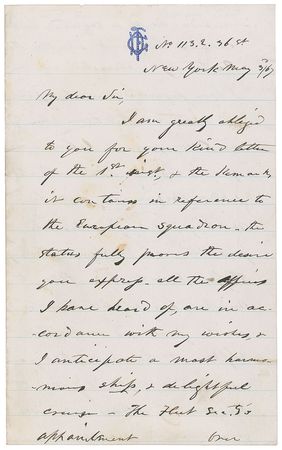 No 113. E. 36 St
New York May
My dear Sir,
I am greatly obliged
to you for your kind letter
of the 1st inst, & the remarks
it contains in reference to
the European Squadron - the
status fully proves the desire
you express - all the officers
I have heard of, are in ac-
-cordance with my wishes, &
I anticipate a most harmo-
-nious ship, & delightful
cruise - The Fleet
appointment over